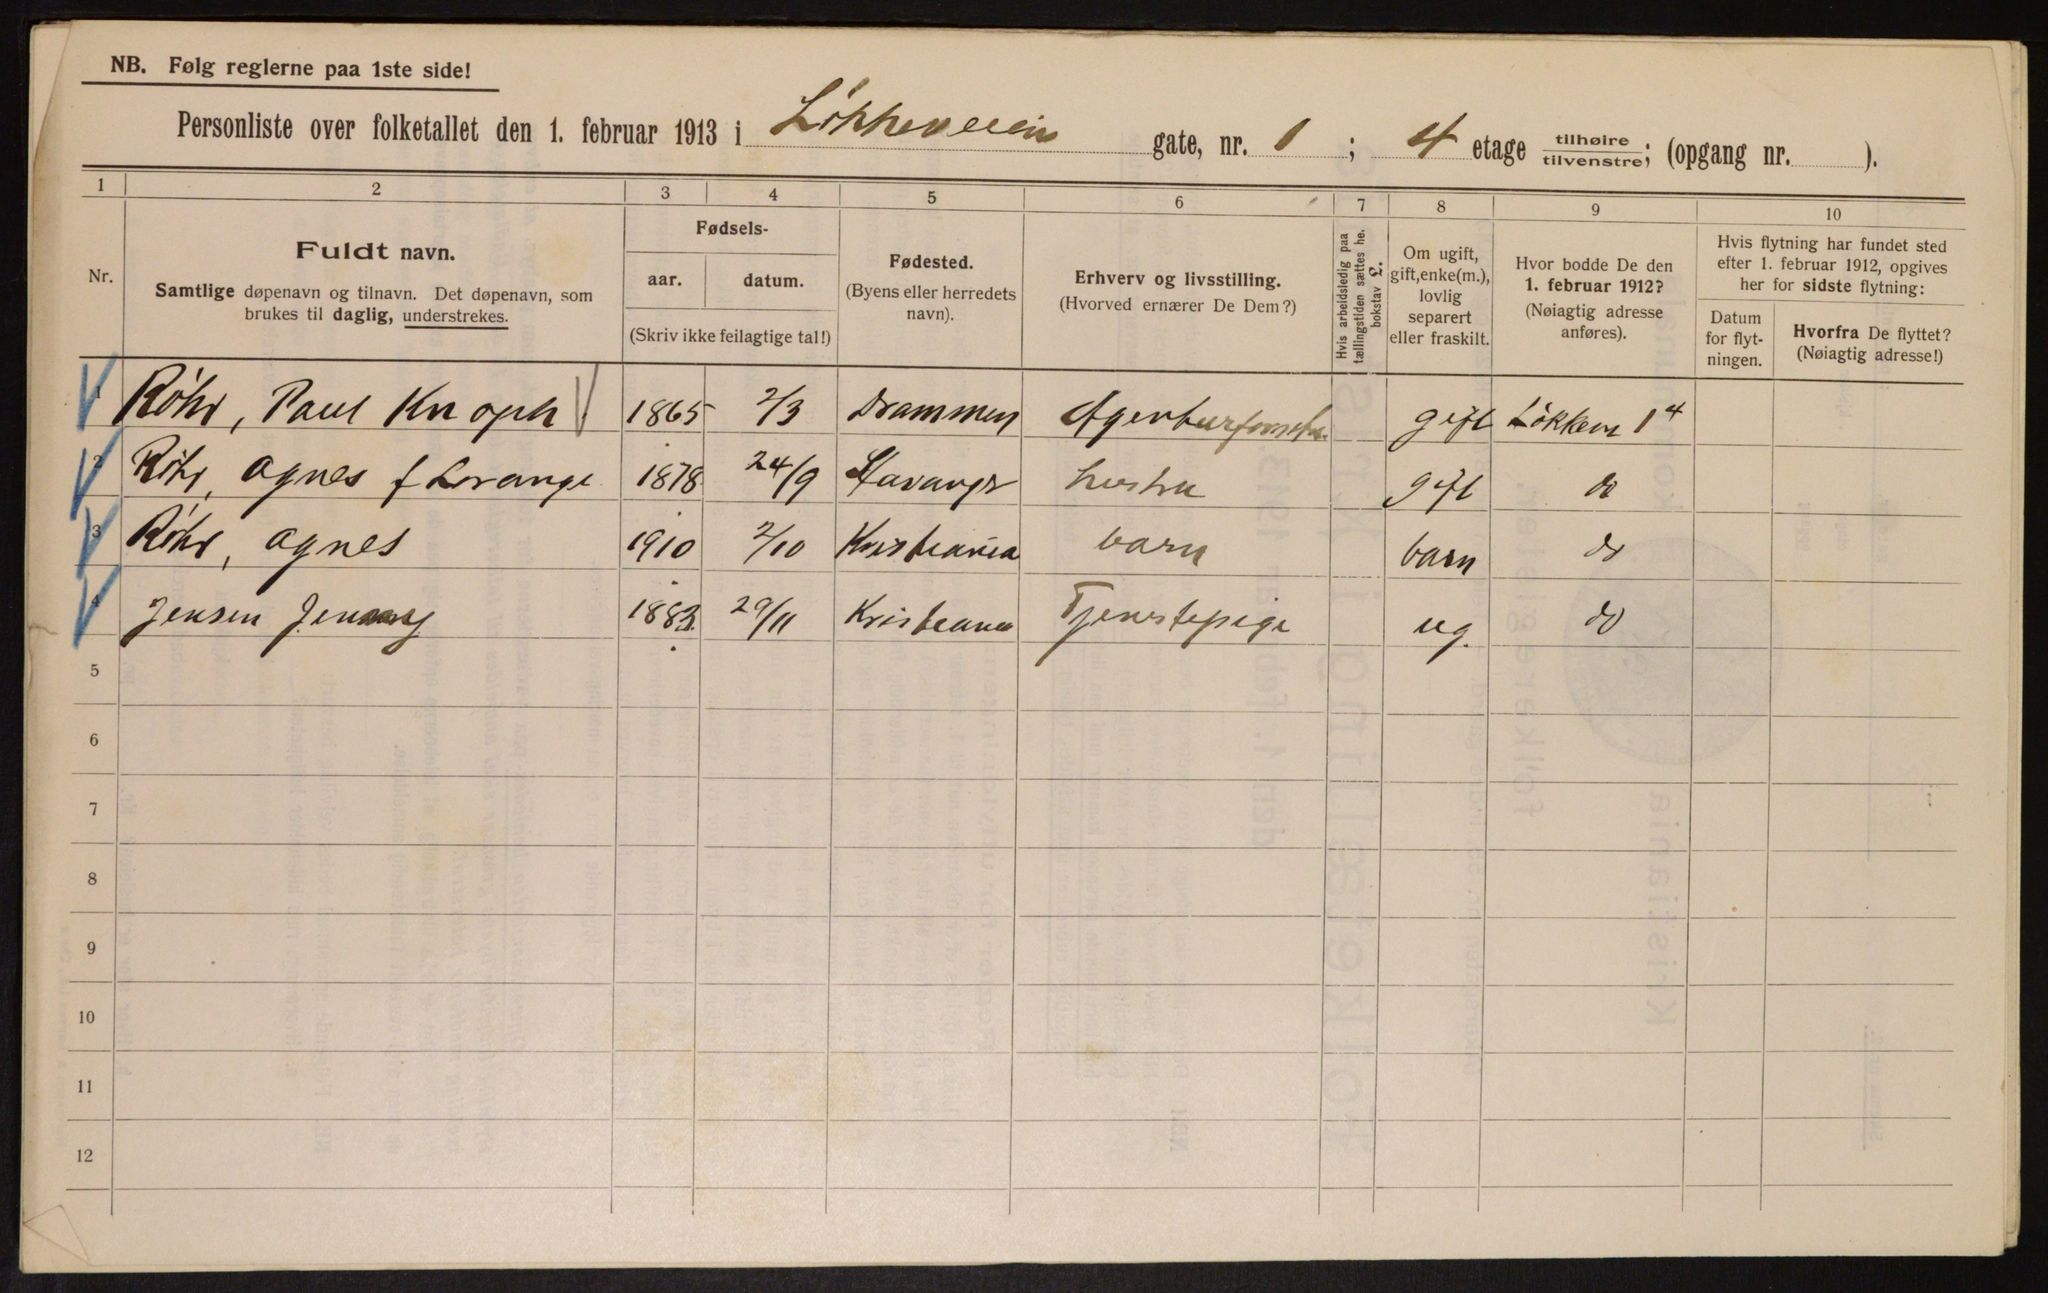 NB. Følg reglerne paa 1ste side!
Personliste over folketallet den 1. februar 1913 i Løkkeveien gate, nr. 1; 4 etage tilhøire/tilvenstre; (opgang nr. ).
1 2 3 4 5 6 7 8 9 10
Nr.
Fuldt navn.
Samtlige døpenavn og tilnavn. Det døpenavn, som
brukes til daglig, understrekes.
Fødsels-
aar. datum.
(Skriv ikke feilagtige tal!)
Fødested.
(Byens eller herredets
navn).
Erhverv og livsstilling.
(Hvorved ernærer De Dem?)
Hvis arbeidsledig paa
tællingstiden sættes he.
bokstav L.
Om ugift,
gift, enke(m.),
lovlig
separert
eller fraskilt.
Hvor bodde De den
1. februar 1912?
(Nøiagtig adresse
anføres).
Hvis flytning har fundet sted
efter 1. februar 1912, opgives
her for sidste flytning:
Datum
for flyt-
ningen.
Hvorfra De flyttet?
(Nøiagtig adresse!)
1 Röhr, Paul Knoph 1865 2/3 Drammen gift Løkkev 1 4
2 Röhr, Agnes f Lorange 1878 24/9 Stavanger hustru gift do
3 Röhr, Agnes 1910 2/10 Kristiania barn barn do
4 Jensen Jenny 1883 29/11 Kristiania Tjenestepige ug. do
5
6
7
8
9
10
11
12